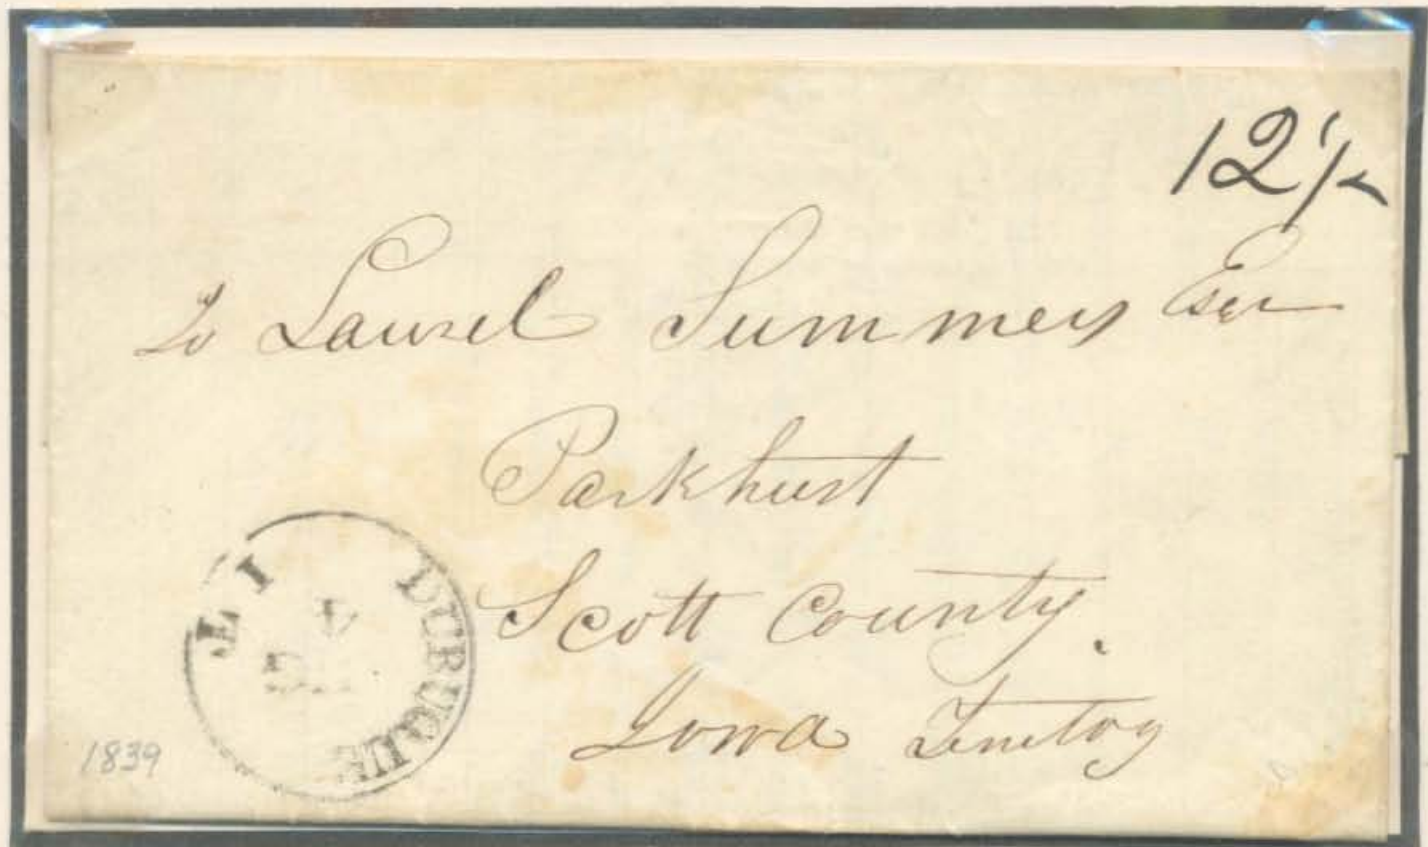 12½
To Laurel Summers Esqr
Parkhurst
Scott County.
Iowa Territory
DUBUQUE I. T.
4
1839